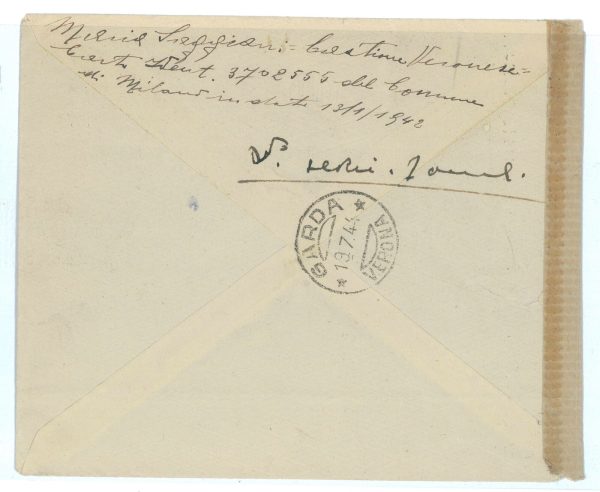 Maria = Castione Veronese =
Carta Ident. 3702555 del Comune
di Milano in data 13/1/1942
GARDA
19.7.44
VERONA